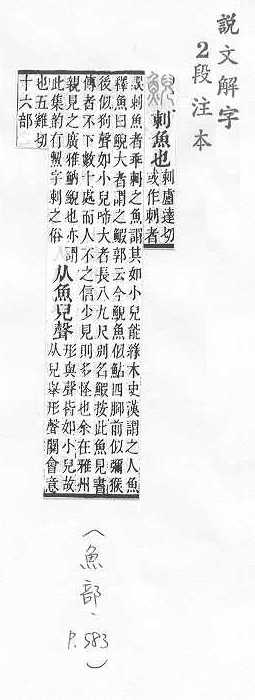 説文解字
2段注本
鯢 刺魚也 刺盧達切
或作刺者
誤刺魚者乖刺之魚謂其如小兒能緣木史漢謂之人魚
釋魚曰鯢大者謂之鰕郭云今鯢魚似鮎四脚前似獼猴
後似狗聲如小兒啼大者長八九尺別名鰕按此魚見書
傳者不下數十處而人不之信少見則多怪也余在雅州
親見之廣雅魶鯢也亦謂
此集韵有字刺之俗
从魚兒聲 形與聲皆如小兒故
从兒舉形聲關會意
也五雞切
十六部
(魚部、P.583)